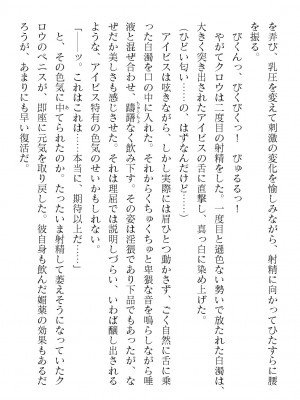 を弄び、乳圧を変えて刺激の変化を愉しみながら、射精に向かってひたすらに腰
を振る。
びくんっ、びくびくっ！　びゅるるっ！
やがてクロウは二度目の射精をした。一度目と遜色ない勢いで放たれた白濁は、
大きく突き出されたアイビスの舌に直撃し、真っ白に染め上げた。
（ひどい匂い……の、はずなんだけど……）
アイビスは呟きながら、しかし実際には眉ひとつ動かさず、ごく自然に舌に乗
った白濁を口の中に入れた。それからくちゅくちゅと卑猥な音を鳴らしながら唾
液と混ぜ合わせ、躊躇なく飲み下す。その姿は淫猥であり下品でもあったが、な
ぜだか美しさも感じさせた。それは理屈では説明しづらい、いわば醸し出される
ような、アイビス特有の色気のせいかもしれない。
「――ッ。これはこれは……本当に、期待以上だ……」
と、その色気に中てられたのか。たったいま射精して萎えそうになっていたク
ロウのペニスが、即座に元気を取り戻した。彼自身も飲んだ媚薬の効果もあるだ
ろうが、あまりにも早い復活だ。